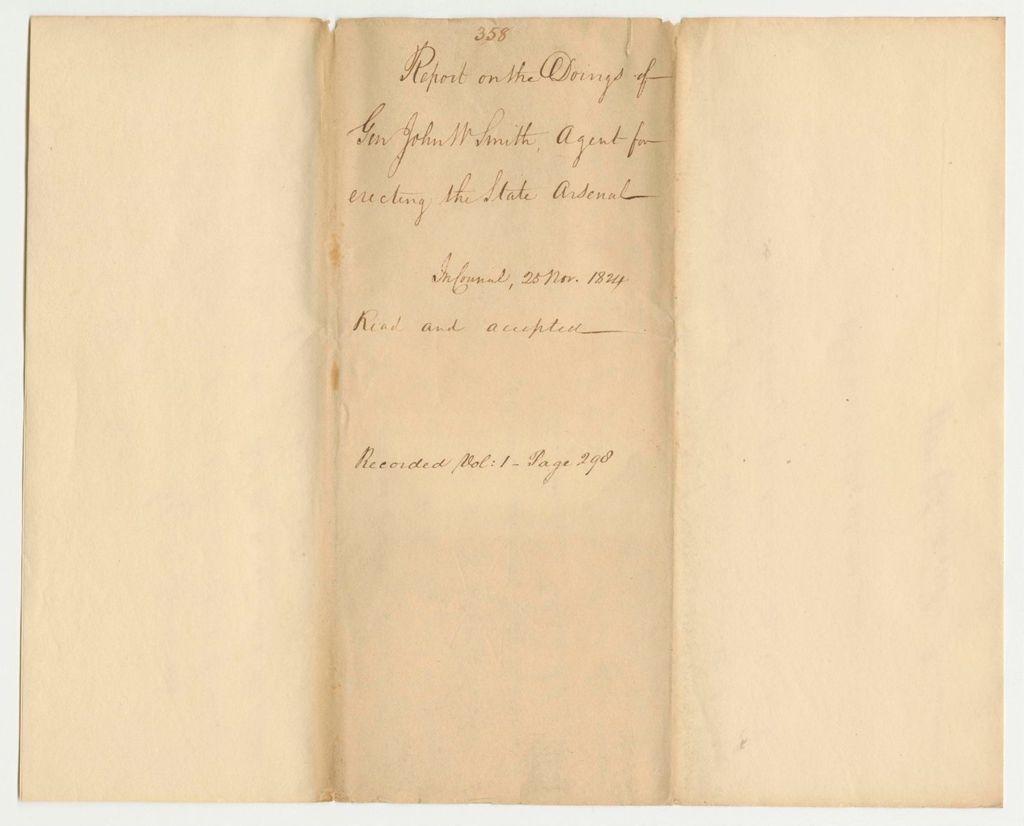 358
Report on the Doings of
Gen John W Smith, Agent for
erecting the State Arsenal
In Council, 25 Nov. 1824
Read and accepted
Recorded Vol: 1 - Page 298